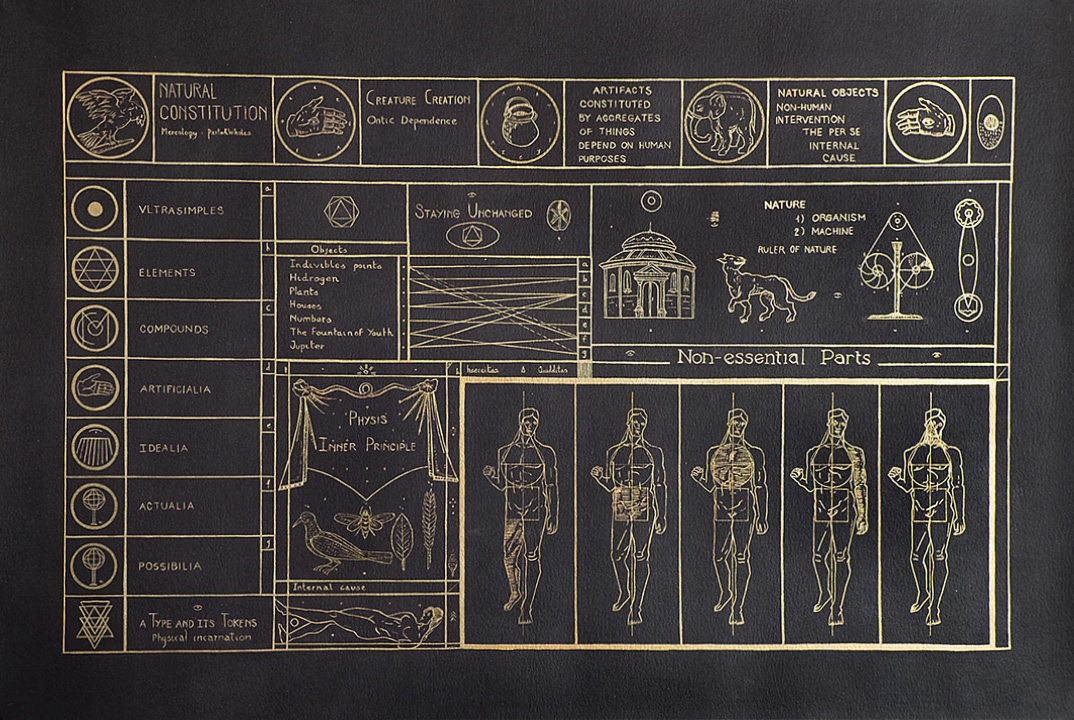 NATURAL
CONSTITUTION
Mereology : Parts & Wholes
CREATURE CREATION
Ontic Dependence
ARTIFACTS
CONSTITUTED
BY AGGREGATES
OF THINGS
DEPEND ON HUMAN
PURPOSES
NATURAL OBJECTS
NON-HUMAN
INTERVENTION
THE PER SE
INTERNAL
CAUSE
VLTRASIMPLES
ELEMENTS
COMPOUNDS
ARTIFICIALIA
IDEALIA
ACTUALIA
POSSIBILIA
A TYPE AND ITS TOKENS
Physical incarnation
a
b
c
d
e
f
STAYING UNCHANGED
Objects
Indivibles points
Hidrogen
Plants
Houses
Numbers
The Fountain of Youth
Jupiter
a
b
c
d
e
f
g
haecceitas
Quidditas
NATURE
1) ORGANISM
2) MACHINE
RULER OF NATURE
Non-essential Parts
PHYSIS
INNER PRINCIPLE
Internal cause